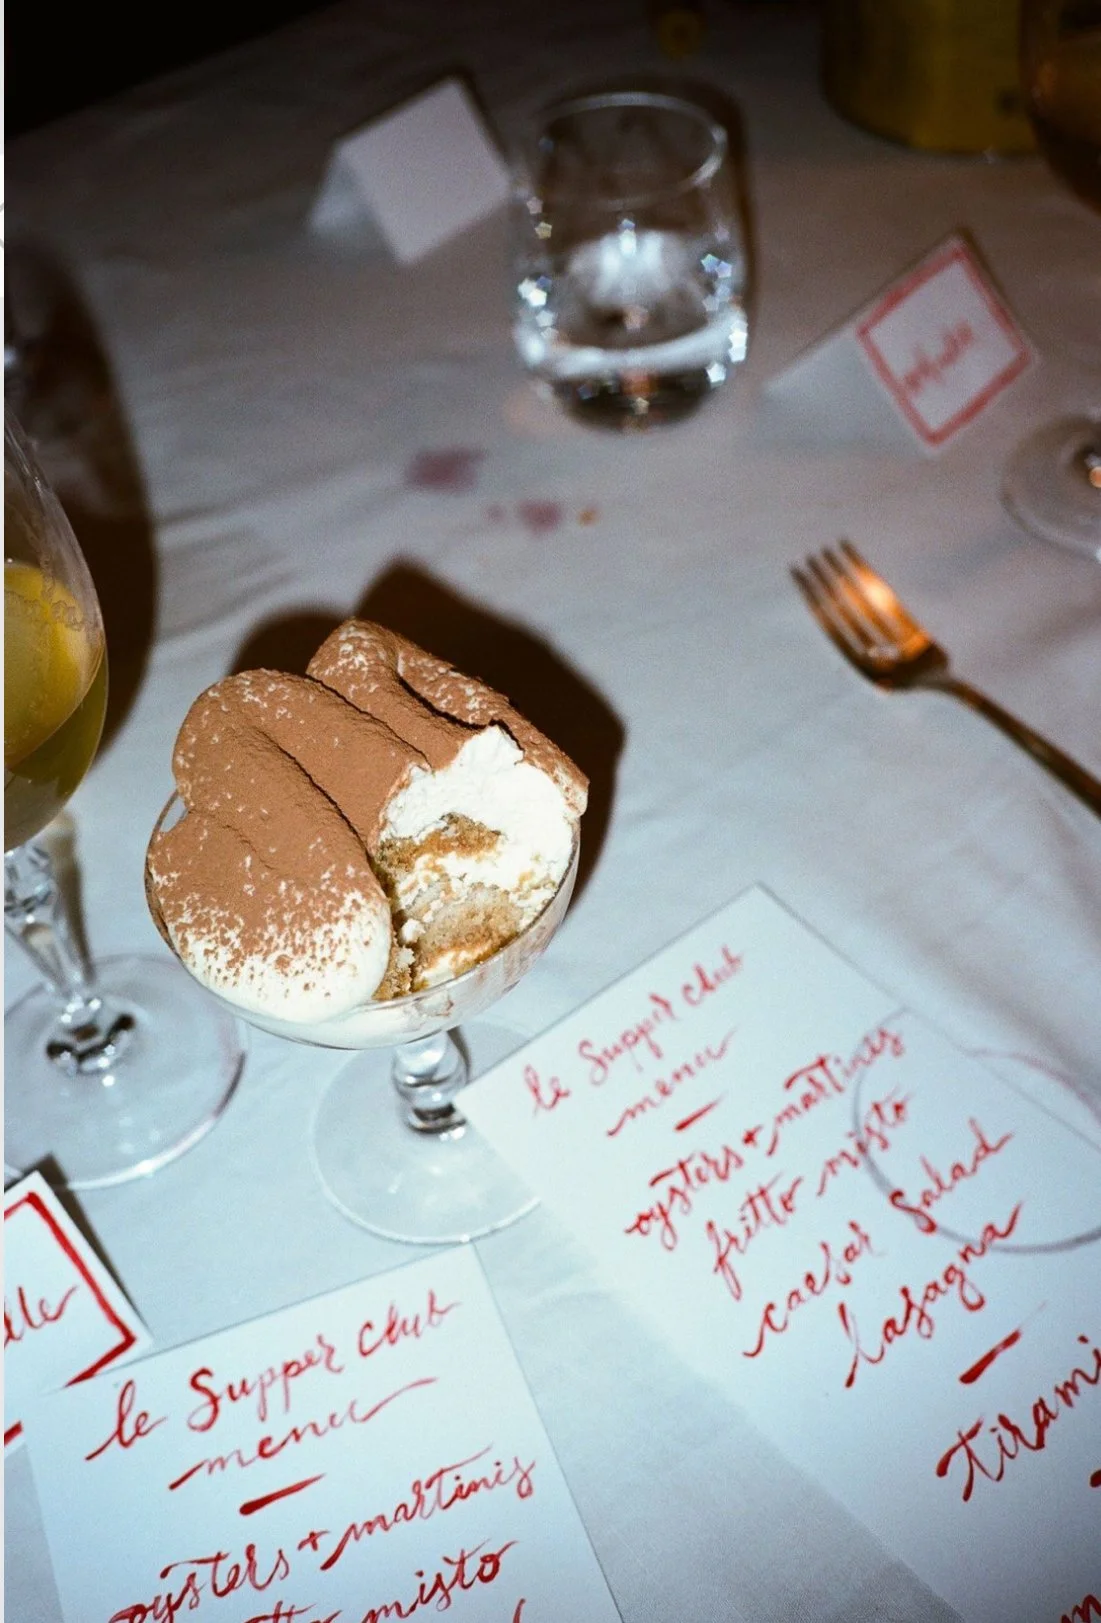 le Supper club
menu
oysters + martinis
fritto misto
caesar Salad
lasagna
tirami
le Supper club
menu
oysters + martinis
misto